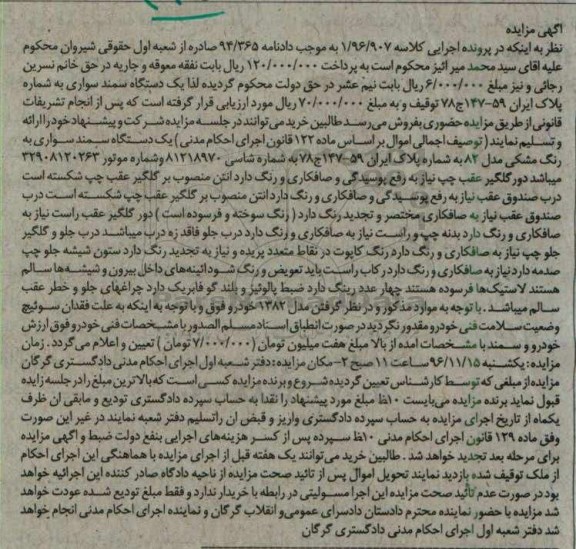 آگهی مزایده
نظر به اینکه در پرونده اجرایی کلاسه ۱/۹۶/۹۰۷ به موجب دادنامه ۹۴/۳۶۵ صادره از شعبه اول حقوقی شیروان محکوم
علیه آقای سید محمد میر آئیز محکوم است به پرداخت ۱۲۰/۰۰۰/۰۰۰ ریال بابت نفقه معوقه و جاریه در حق خانم نسرین
رجائی و نیز مبلغ ۶/۰۰۰/۰۰۰ ریال بابت نیم عشر در حق دولت محکوم گردیده لذا یک دستگاه سمند سواری به شماره
پلاک ایران ۵۹-۱۴۷ج۷۸ توقیف و به مبلغ ۷۰/۰۰۰/۰۰۰ ریال مورد ارزیابی قرار گرفته است که پس از انجام تشریفات
قانونی از طریق مزایده حضوری بفروش می رسد طالبین خرید می توانند در جلسه مزایده شرکت و پیشنهاد خود را ارائه
و تسلیم نمایند ( توصیف اجمالی اموال بر اساس ماده ۱۲۲ قانون اجرای احکام مدنی ) یک دستگاه سمند سواری به
رنگ مشکی مدل ۸۲ به شماره پلاک ایران ۵۹-۱۴۷ج۷۸ به شماره شاسی ۸۱۲۱۸۹۷۰ وشماره موتور ۳۲۹۰۸۱۲۰۲۶۳
میباشد دور گلگیر عقب چپ نیاز به رفع پوسیدگی و صافکاری و رنگ دارد انتن منصوب بر گلگیر عقب چپ شکسته است
درب صندوق عقب نیاز به رفع پوسیدگی و صافکاری و رنگ دارد انتن منصوب بر گلگیر عقب چپ شکسته است درب
صندوق عقب نیاز به صافکاری مختصر و تجدید رنگ دارد ( رنگ سوخته و فرسوده است ) دور گلگیر عقب راست نیاز به
صافکاری و رنگ دارد بدنه چپ و راست نیاز به صافکاری و رنگ دارد درب جلو فاقد زه درب میباشد درب جلو و گلگیر
جلو چپ نیاز به صافکاری و رنگ دارد رنگ کاپوت در نقاط متعدد پریده و نیاز به تجدید رنگ دارد ستون شیشه جلو چپ
صدمه دارد نیاز به صافکاری و رنگ دارد رکاب راست باید تعویض و رنگ شود ائینه‌های داخل بیرون و شیشه‌ها سالم
هستند لاستیک‌ها فرسوده هستند چهار عدد رینگ دارد ضبط پائولیز و بلند گو فابریک دارد چراغهای جلو و خطر عقب
سالم میباشد . با توجه به موارد مذکور و در نظر گرفتن مدل ۱۳۸۲ خودرو فوق و با توجه به اینکه به علت فقدان سوئیچ
وضعیت سلامت فنی خودرو مقدور نگردید در صورت انطباق اسناد مسلم الصدور با مشخصات فنی خودرو فوق ارزش
خودرو و سمند با مشخصات آمده از بالا مبلغ هفت میلیون تومان (۷/۰۰۰/۰۰۰ تومان ) تعیین و اعلام می گردد . زمان
مزایده: یکشنبه ۹۶/۱۱/۱۵ ساعت ۱۱ صبح ۲- مکان مزایده: دفتر شعبه اول اجرای احکام مدنی دادگستری گرگان
مزایده از مبلغی که توسط کارشناس تعیین گردیده شروع و برنده مزایده کسی است که بالاترین مبلغ را در جلسه زایده
قبول نماید برنده مزایده می‌بایست ۱۰٪ مبلغ مورد پیشنهاد را نقدا به حساب سپرده دادگستری تودیع و مابقی ان ظرف
یکماه از تاریخ اجرای مزایده به حساب سپرده دادگستری واریز و قبض ان راتسلیم دفتر شعبه نمایند در غیر این صورت
وفق ماده ۱۲۹ قانون اجرای احکام مدنی ۱۰٪ سپرده پس از کسر هزینه‌های اجرایی بنفع دولت ضبط و اگهی مزایده
برای مرحله بعد تجدید خواهد شد . طالبین خرید می توانند یک هفته قبل از اجرای مزایده با هماهنگی این اجرای احکام
از ملک توقیف شده بازدید نمایند تحویل اموال پس از تائید صحت مزایده از ناحیه دادگاه صادر کننده این اجرائیه خواهد
بود در صورت عدم تائید صحت مزایده این اجرا مسولیتی در رابطه با خریدار ندارد و فقط مبلغ تودیع شده عودت خواهد
شد مزایده با حضور نماینده محترم دادستان دادسرای عمومی و انقلاب گرگان و نماینده اجرای احکام مدنی انجام خواهد
شد دفتر شعبه اول اجرای احکام مدنی دادگستری گرگان